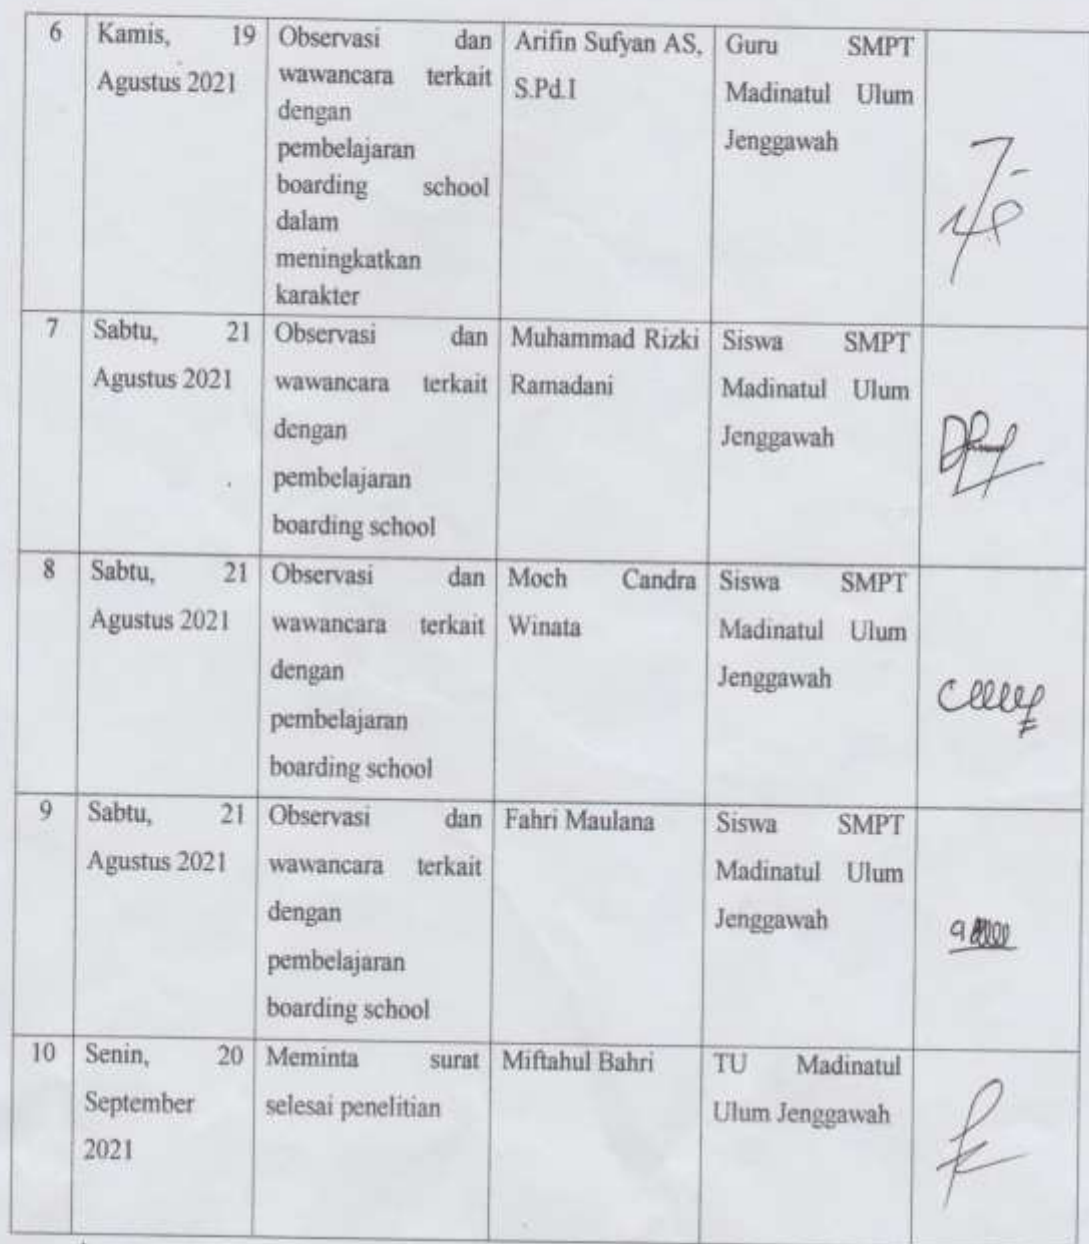 6
Kamis, 19
Agustus 2021
Observasi dan
wawancara terkait
dengan
pembelajaran
boarding school
dalam
meningkatkan
karakter
Arifin Sufyan AS,
S.Pd.I
Guru SMPT
Madinatul Ulum
Jenggawah
7
Sabtu, 21
Agustus 2021
Observasi dan
wawancara terkait
dengan
pembelajaran
boarding school
Muhammad Rizki
Ramadani
Siswa SMPT
Madinatul Ulum
Jenggawah
8
Sabtu, 21
Agustus 2021
Observasi dan
wawancara terkait
dengan
pembelajaran
boarding school
Moch Candra
Winata
Siswa SMPT
Madinatul Ulum
Jenggawah
9
Sabtu, 21
Agustus 2021
Observasi dan
wawancara terkait
dengan
pembelajaran
boarding school
Fahri Maulana
Siswa SMPT
Madinatul Ulum
Jenggawah
10
Senin, 20
September
2021
Meminta surat
selesai penelitian
Miftahul Bahri
TU Madinatul
Ulum Jenggawah